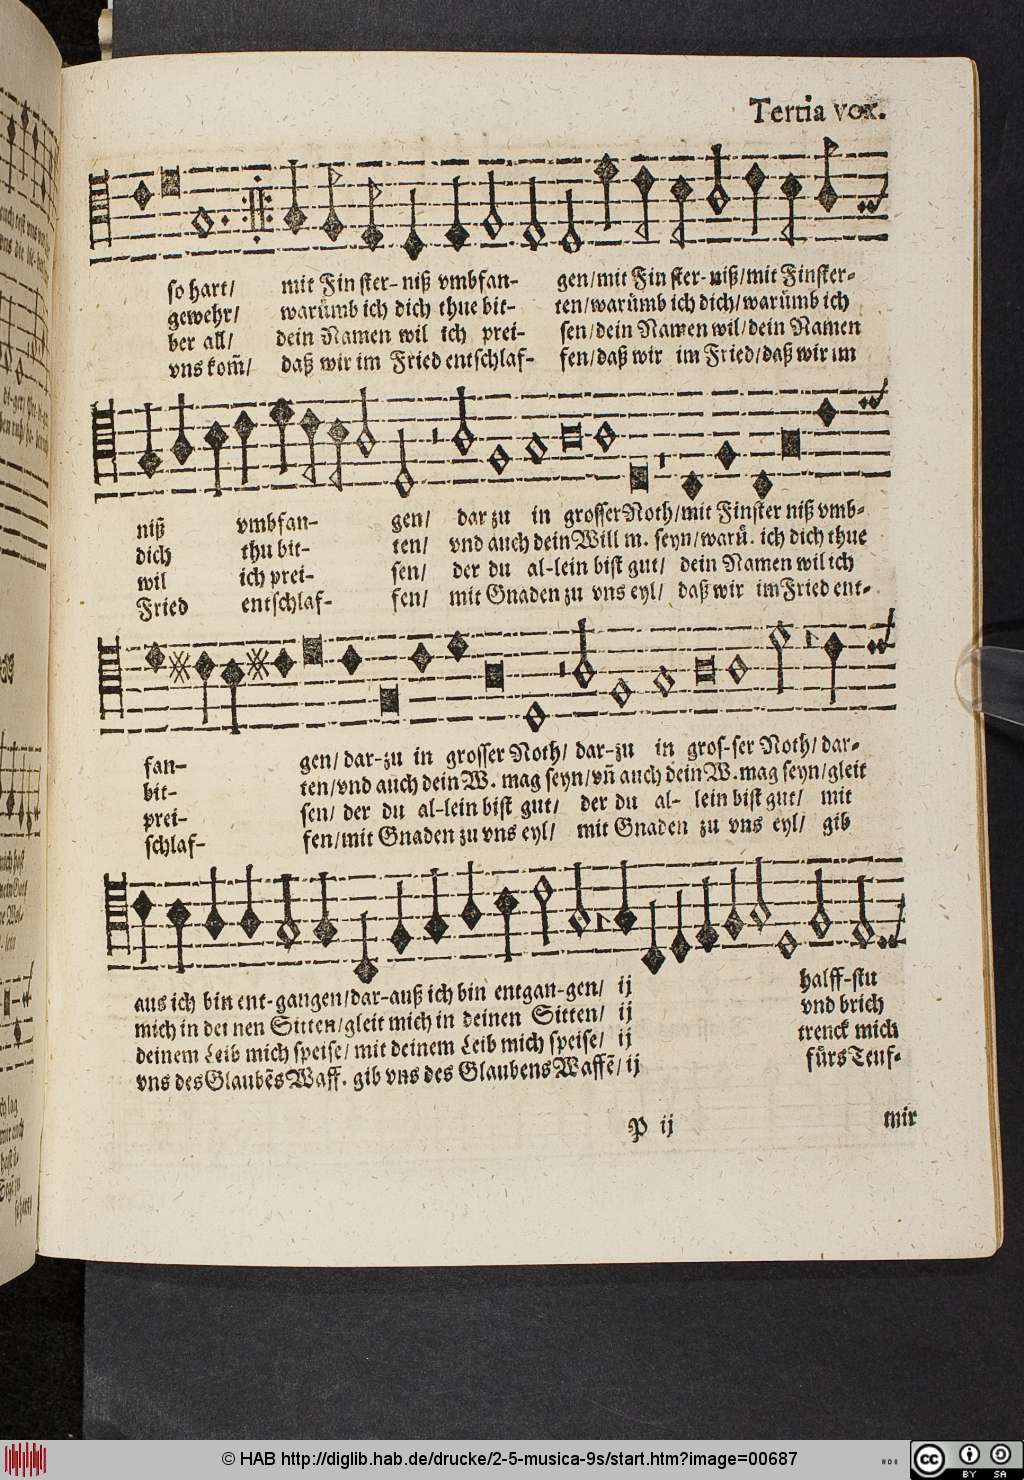 Tertia vox.
so hart/ mit Finster- niß vmbfan- gen/mit Finster- niß/mit Finster-
gewehr/ warümb ich dich thue bit- ten/warümb ich dich/warümb ich
ber all/ dein Namen wil ich prei- sen/dein Namen wil/dein Namen
vns kom̃/ daß wir im Fried entschlaf- fen/daß wir im Fried/daß wir im
niß vmbfan- gen/ dar zu in grosser Noth/mit Finster niß vmb-
dich thu bit- ten/ vnd auch dein Will m. seyn/warü. ich dich thue
wil ich prei- sen/ der du al-lein bist gut/ dein Namen wil ich
Fried entschlaf- fen/ mit Gnaden zu vns eyl/ daß wir im Fried ent-
fan- gen/ dar-zu in grosser Noth/ dar-zu in gros-ser Noth/ dar-
bit- ten/vnd auch dein W. mag seyn/vñ auch dein W. mag seyn/gleit
prei- sen/ der du al-lein bist gut/ der du al- lein bist gut/ mit
schlaf- fen/mit Gnaden zu vns eyl/ mit Gnaden zu vns eyl/ gib
aus ich bin ent-gangen/dar-auß ich bin entgan-gen/ ij halff-stu
mich in dei nen Sitten/gleit mich in deinen Sitten/ ij vnd brich
deinem Leib mich speise/ mit deinem Leib mich speise/ ij trenck mich
vns des Glaubẽs Waff. gib vns des Glaubens Waffẽ/ ij fürs Teuf-
P ij mir
© HAB http://diglib.hab.de/drucke/2-5-musica-9s/start.htm?image=00687
cc BY SA